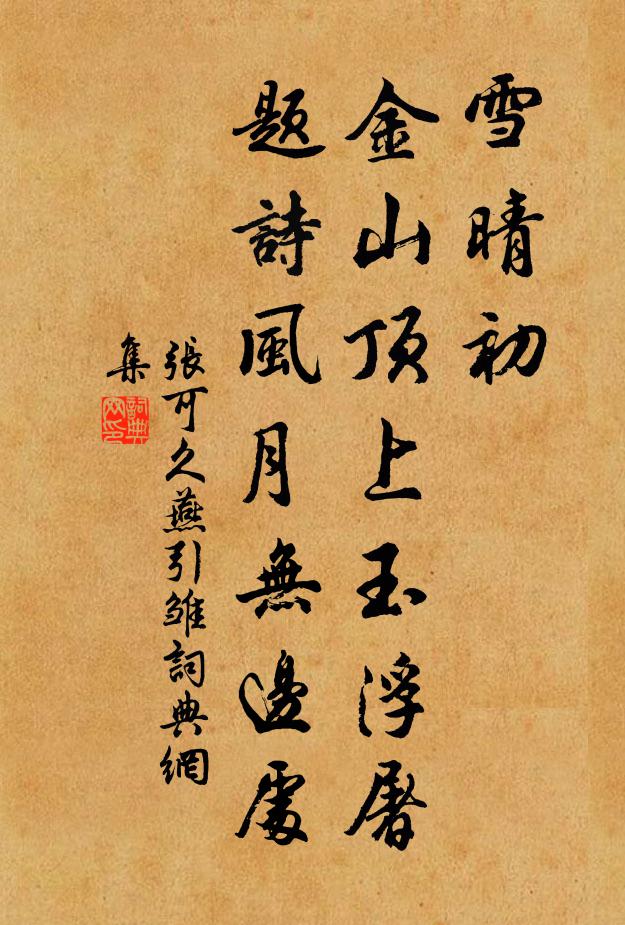 雪晴初
金山頂上玉浮屠
題詩風月無邊處
張可久燕引雏詞典網
集
詞典
网印